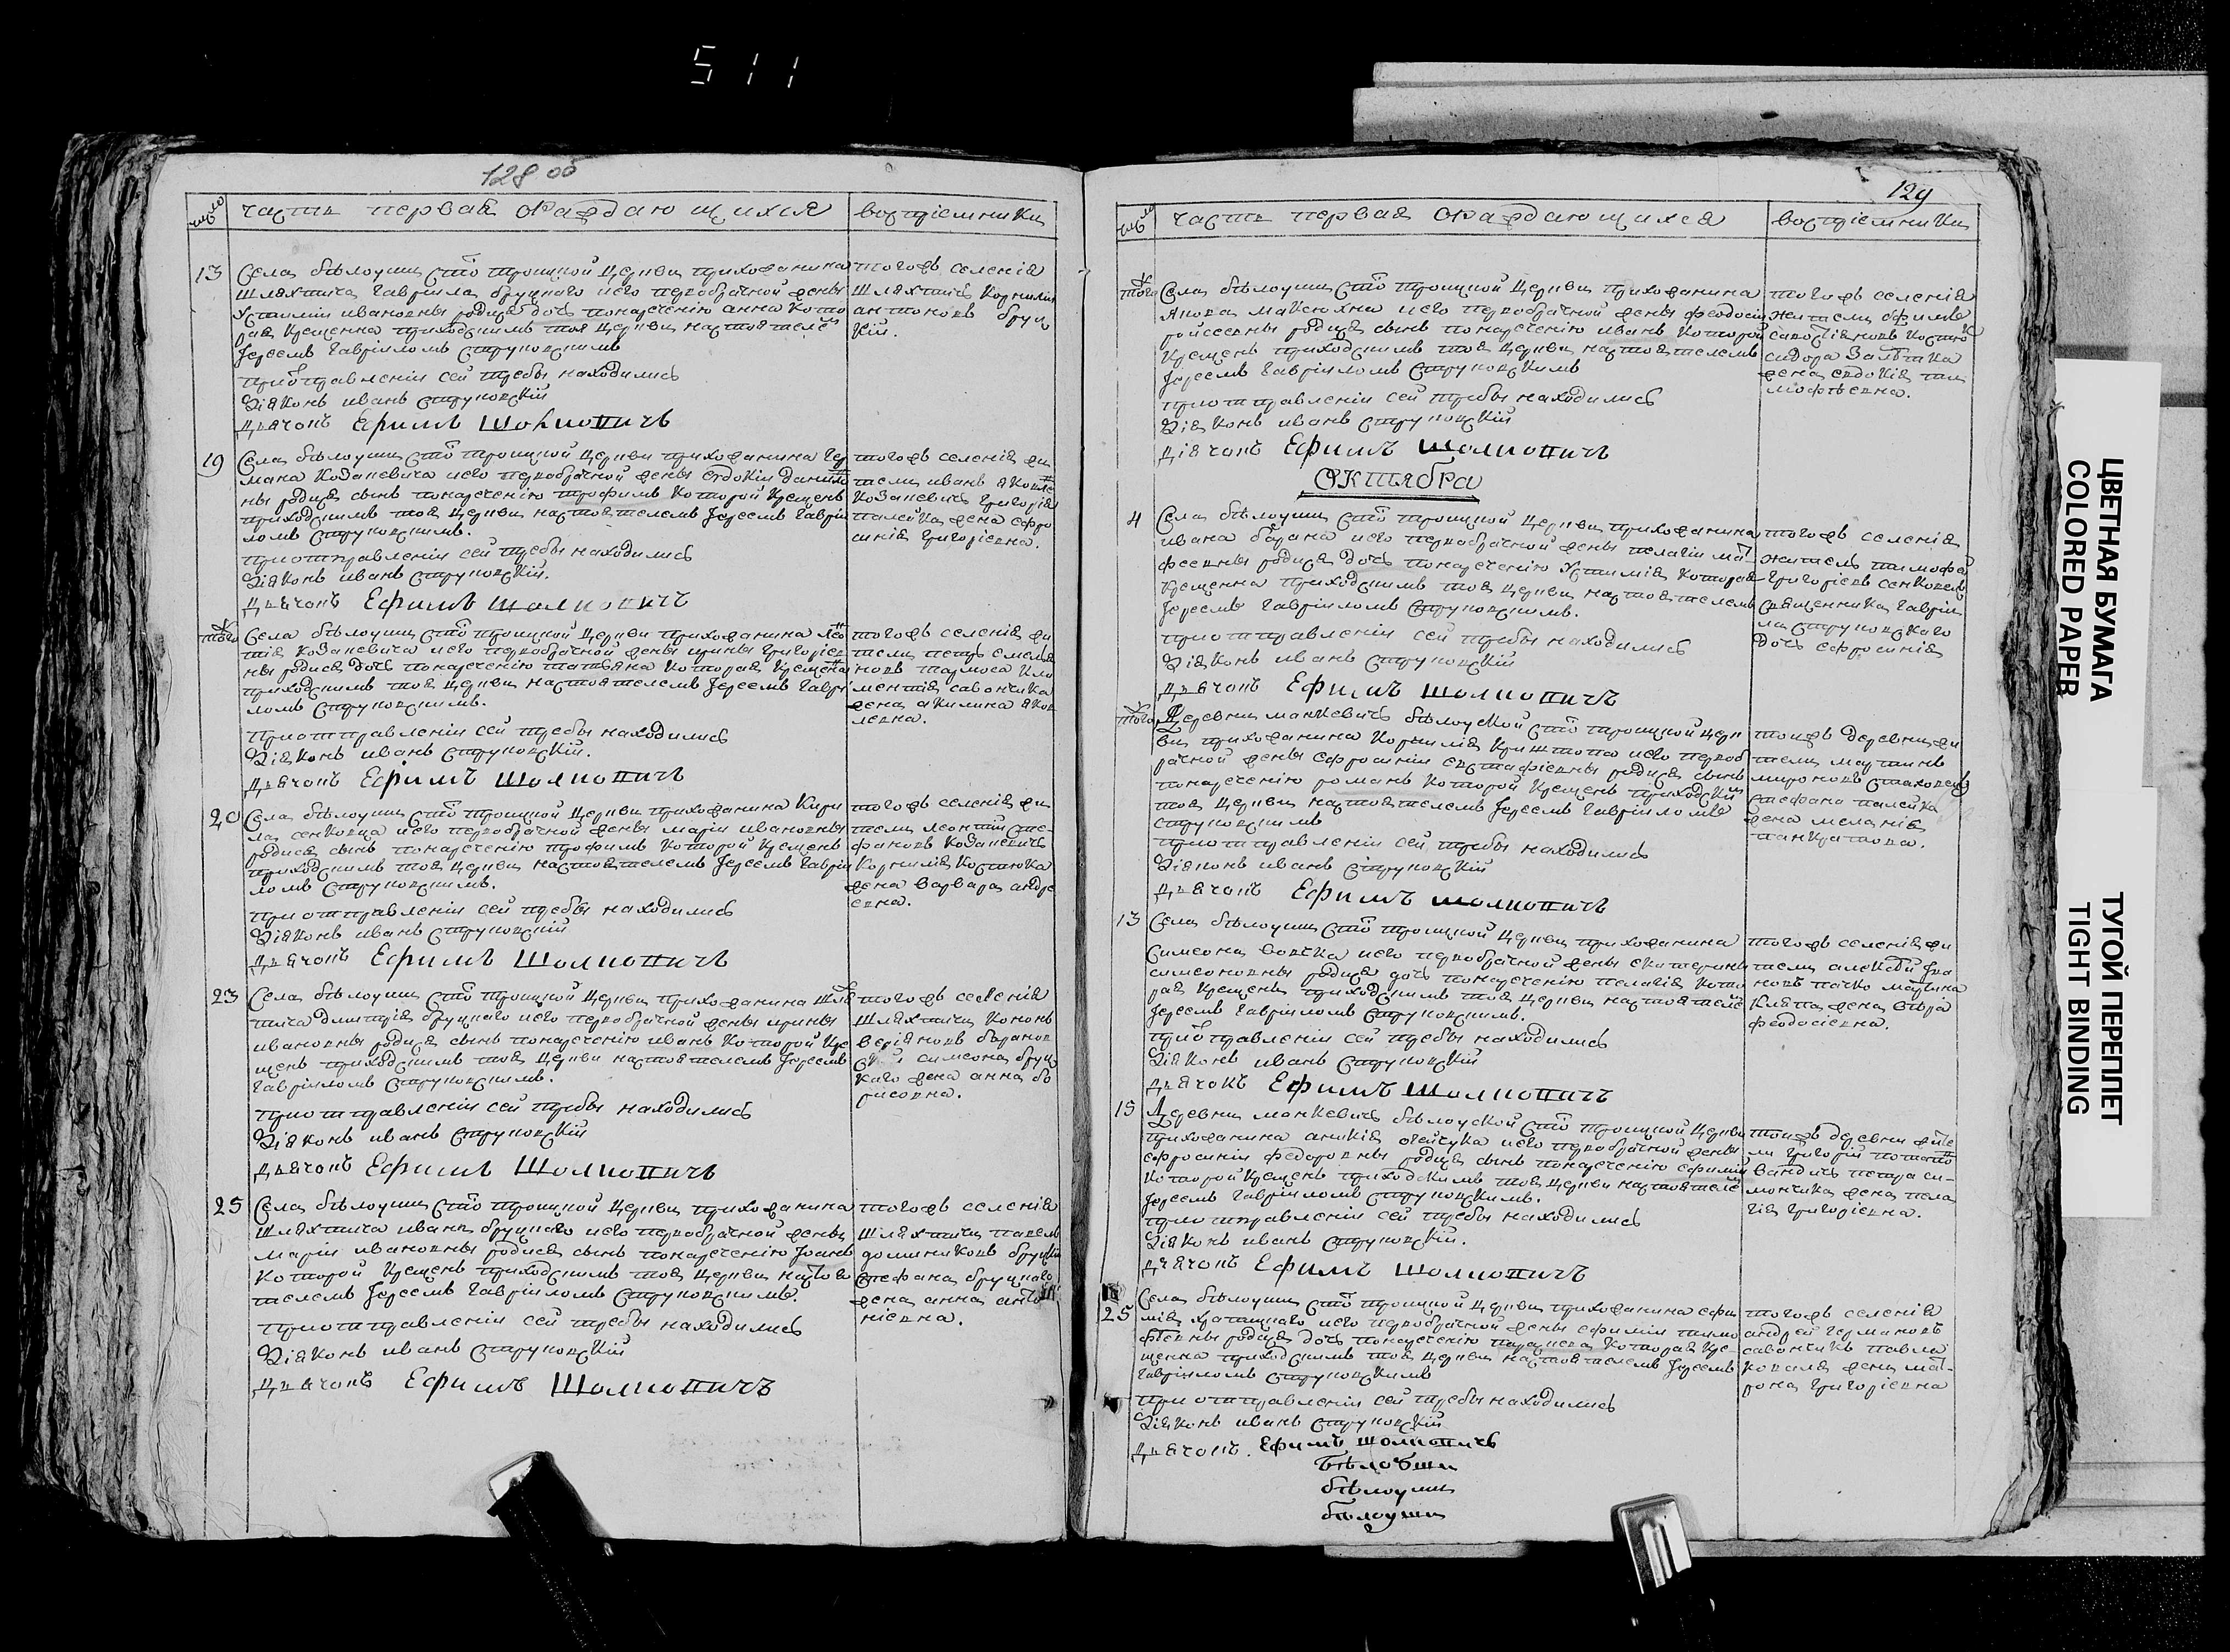 511
128 об
число
часть первая ораждающихся
воспріемники
13
Села бѣлоуши Стой троицкой Церкви прихожанина
шляхтича Гавріила бруцкого иего первобрачной жены
Устиміи ивановны родися дочь понареченію анна Кото
рая Крещенна приходскимъ тоя Церкви настоятеле
Іереемъ Гавріиломъ Струковскимъ
приотправленіи сей требы находились
Діяконъ иванъ Струковскій
Дьячокъ Ефимъ Шоломовичъ
тогожъ селенія
шляхтичъ Корнилій
антоновъ бруц
Кій.
19
Села бѣлоуши Стой троицкой Церкви прихожанина Гер
мана Козаневича иего первобрачной жены евдокіи данило
ны родися сынъ понареченію трофимъ Которой Крещенъ
приходскимъ тоя Церкви настоятелемъ Іереемъ Гаврии
ломъ Струковскимъ.
приотправленіи сей требы находились
Діяконъ иванъ Струковскій.
Дьячокъ Ефимъ Шоломовичъ
тогожъ селенія жи
тели иванъ яковле
Козаневичъ Григорія
палейка жена ефро
синія Григоріевна.
того
Села бѣлоуши Стой троицкой Церкви прихожанина Лео
тія Козаневича иего первобрачной жены ирины Григоріев
ны родися дочь понареченію татьяна Которая Крещена
приходскимъ тоя Церкви настоятелемъ Іереемъ Гаври
ломъ Струковскимъ.
приотправленіи сей требы находились
Діяконъ иванъ Струковскій.
Дьячокъ Ефимъ Шоломовичъ
тогожъ селенія жи
тели петръ емелья
новъ Кли
ментія савончика
жена акилина яков
левна.
20
Села бѣлоуши Стой троицкой Церкви прихожанина Кири
ла сенковца иего первобрачной жены маріи ивановны
родися сынъ понареченію трофимъ Которой Крещенъ
приходскимъ тоя Церкви настоятелемъ Іереемъ Гавріи
ломъ Струковскимъ.
приотправленіи сей требы находились
Діяконъ иванъ Струковскій
Дьячокъ Ефимъ Шоломовичъ
тогожъ селенія жи
тели леонтій сте-
фановъ Козаневичъ
Корнилія Костюка
жена варвара андре
евна.
23
Села бѣлоуши Стой троицкой Церкви прихожанина шлях
тича дмитрія бруцкаго иего первобрачной жены ирины
ивановны родися сынъ понареченію иванъ Которой Кре
щенъ приходскимъ тоя Церкви настоятелемъ Іереемъ
Гавріиломъ Струковскимъ.
приотправленіи сей требы находились
Діяконъ иванъ Струковскій
Дьячокъ Ефимъ Шоломовичъ
тогожъ селенія
шляхтичи Кононъ
баранов
скій симеона бруц
Каго жена анна бо
рисовна.
25
Села бѣлоуши Стой троицкой Церкви прихожанина
шляхтича ивана бруцкаго иего первобрачной жены
маріи ивановны родися сынъ понареченію Іоанъ
Которой Крещенъ приходскимъ тоя Церкви настоя
телемъ Іереемъ Гавріиломъ Струковскимъ.
приотправленіи сей требы находились
Діяконъ иванъ Струковскій
Дьячокъ Ефимъ Шоломовичъ
тогожъ селенія
шляхтичи павелъ
доминиковъ бруцкій
Стефана бруцкаго
жена анна анто
ніевна.
129
число
часть первая ораждающихся
воспріемники
того
Села бѣлоуши Стой троицкой Церкви прихожанина
иего первобрачной жены феодосіи
родися сынъ понареченію иванъ Которой
Крещенъ приходскимъ тоя Церкви настоятелемъ
Іереемъ Гавріиломъ Струковскимъ
приотправленіи сей требы находились
Діяконъ иванъ Струковскій
Діячокъ Ефимъ Шоломовичъ
тогожъ селенія
жители ефимъ
савостіяновъ Костю
сидора
жена евдокія ти
мофѣевна.
октября
4
Села бѣлоуши Стой троицкой Церкви прихожанина
ивана барана иего первобрачной жены пелагіи мат
феевны родися дочь понареченію Устимія Которая
Крещенна приходскимъ тоя Церкви настоятелемъ
Іереемъ Гавріиломъ Струковскимъ.
приотправленіи сей требы находились
Діяконъ иванъ Струковскій
Дьячокъ Ефимъ Шоломовичъ
тогожъ селенія
житель тимофей
Григоріевъ сенковецъ
Священника Гавріи
ла Струковскаго
дочь ефросинія
того
Деревни манкевичъ бѣлоуской Стой троицкой Церк
ви прихожанина Корнилія Криштопа иего первоб
рачной жены ефросиніи евстафіевны родися сынъ
понареченію романъ Которой Крещенъ приходскій
тоя Церкви настоятелемъ Іереемъ Гавріиломъ
струковскимъ
приотправленіи сей требы находились
Діяконъ иванъ Струковскій
Дьячокъ Ефимъ Шоломовичъ
тоижъ деревни жи
тели мартинъ
мироновъ стаховецъ
Стефана палейка
жена меланія
панкратова.
13
Села бѣлоуши Стой троицкой Церкви прихожанина
Симеона вовчка иего первобрачной жены екатерины
симеоновны родися дочь понареченію пелагія Кото
рая Крещенъ приходскимъ тоя Церкви настоятеле
Іереемъ Гавріиломъ Струковскимъ.
приотправленіи сей требы находились
Діяконъ иванъ Струковскій
Дьячокъ Ефимъ Шоломовичъ
тогожъ селенія жи
тели алексѣй
новъ мартина
жена вѣра
феодосіевна.
15
Деревни манкевичъ бѣлоуской Стой троицкой Церкви
прихожанина иего первобрачной жены
ефросиніи федоровны родися сынъ понареченію ефимій
Которой Крещенъ приходскимъ тоя Церкви настоятеле
Іереемъ Гавріиломъ Струковскимъ.
приотправленіи сей требы находились
Діяконъ иванъ Струковскій.
Дьячокъ Ефимъ Шоломовичъ
тоижъ деревни жите
ли Григорій
петра си-
мончика жена пела
гія Григоріевна.
25
Села бѣлоуши Стой троицкой Церкви прихожанина ефи
мія иего первобрачной жены ефиміи тимо
фѣевны родися дочь понареченію параскева Которая Кре-
щенна приходскимъ тоя Церкви настоятелемъ Іереемъ
Гавріиломъ Струковскимъ
приотправленіи сей требы находились
Діяконъ иванъ Струковскій
Дьячокъ. Ефимъ Шоломовичъ
Бѣлоуши
бѣлоуши
бѣлоуши
тогожъ селенія
андрей Германовъ
савончикъ павла
Коваля жена мат-
рона Григоріевна
ЦВЕТНАЯ БУМАГА
COLORED PAPER
ТУГОЙ ПЕРЕПЛЕТ
TIGHT BINDING